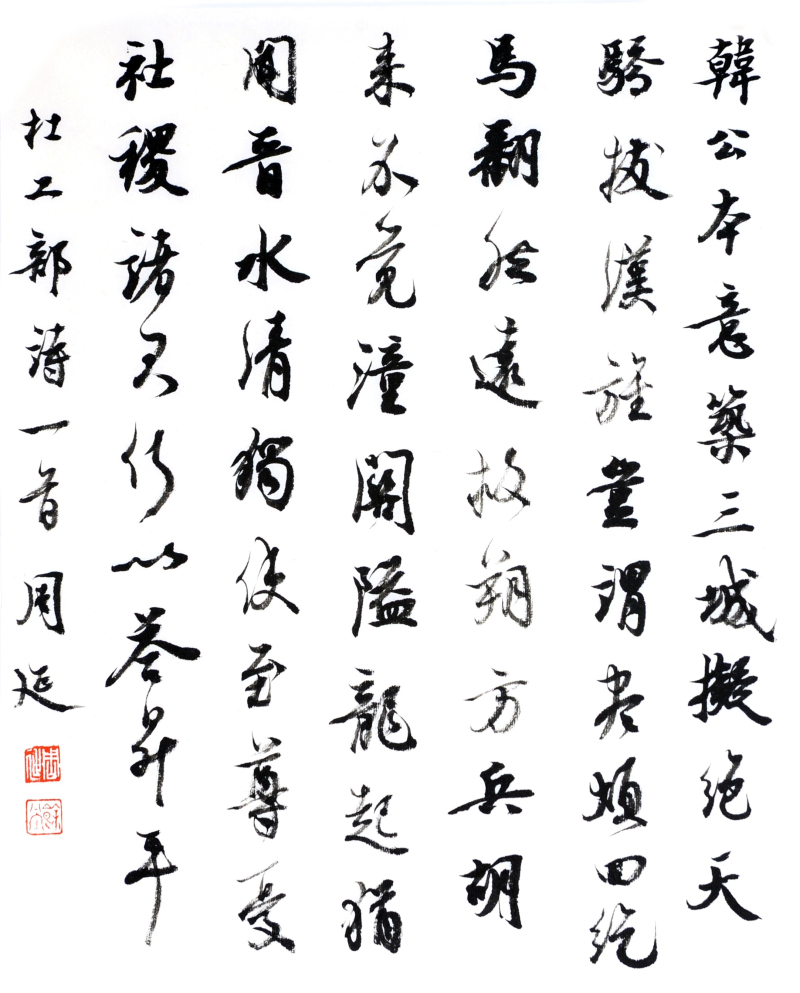 韓公本意築三城擬絕天
驕拔漢旌豈謂盡煩回紇
馬翻然遠救朔方兵胡
来不覺潼關隘龍起猶
聞晉水清獨使至尊憂
社稷諸君何以答昇平
杜工部詩一首周延